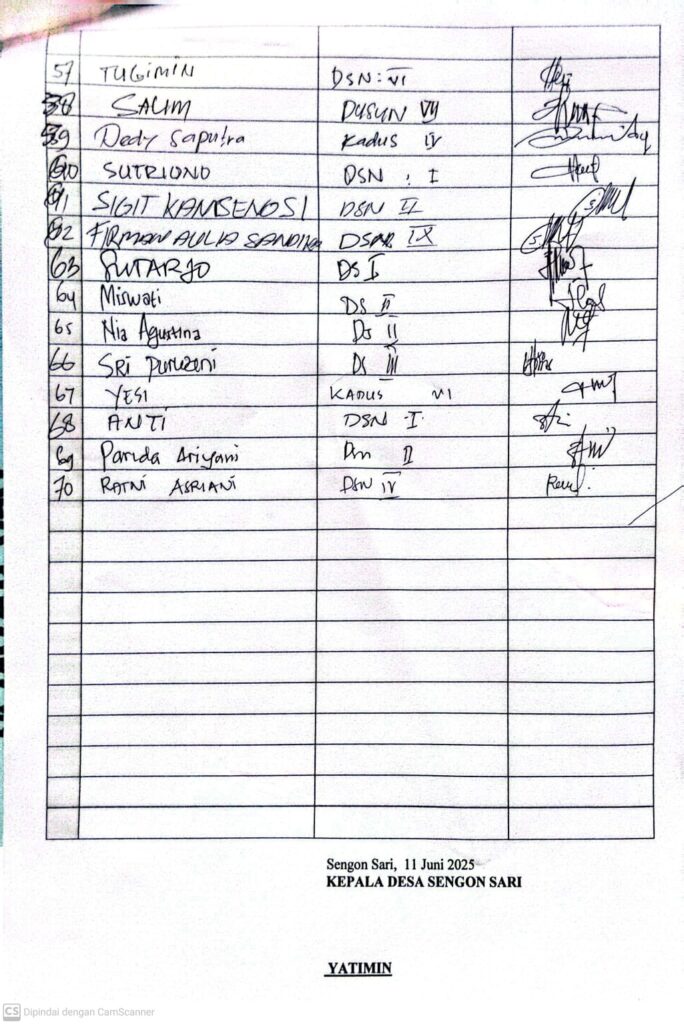 57 TUGIMIN DSN: VI
58 SALIM DUSUN VII
59 Dedy Saputra Kadus IV
60 SUTRIONO DSN : I
61 SIGIT KANSENOSI DSN II
62 FIRMAN AULIA SANDIKA DSN IX
63 SUTARJO DS I
64 Miswati DS II
65 Nia Agustina Ds II
66 SRI Puruzeni Ds III
67 YESI KADUS VI
68 ANTI DSN I
69 Parida Ariyani Dsn II
70 RATNI ASRIANI DSN IV
Sengon Sari, 11 Juni 2025
KEPALA DESA SENGON SARI
YATIMIN
CS Dipindai dengan CamScanner